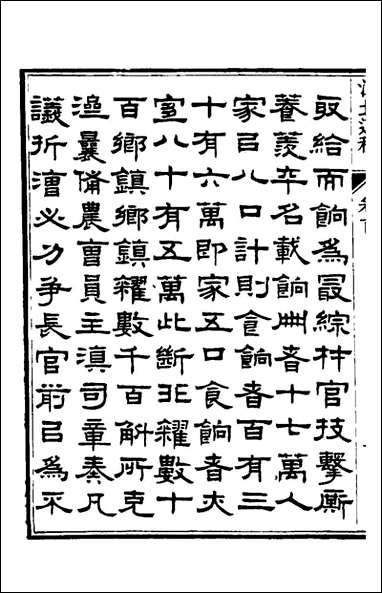 取給而餉爲冣綜材官技擊廝
養羨卒名載餉冊者十七萬人
家㠯八口計則食餉者百有三
十有六萬即家五口食餉者亦
宐八十有五萬此斷非糴數十
百鄉鎮鄉鎮糴數千百斛所克
濟曩備農曹員主滇司章奏凡
議折漕必力爭長官前㠯爲不